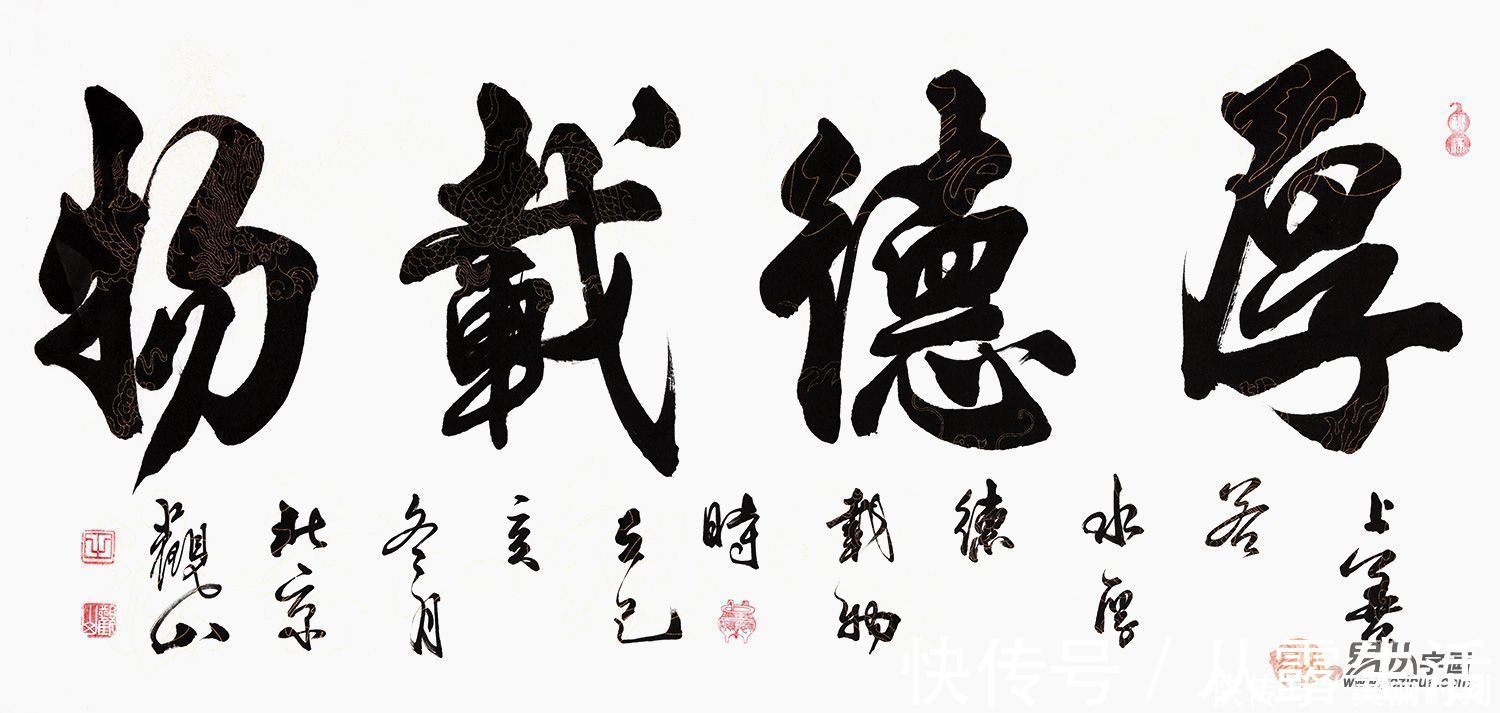 厚德載物
上善
若
水厚
德
載物
時
在己
亥
冬月
北京
觀山
易从字画
快传号